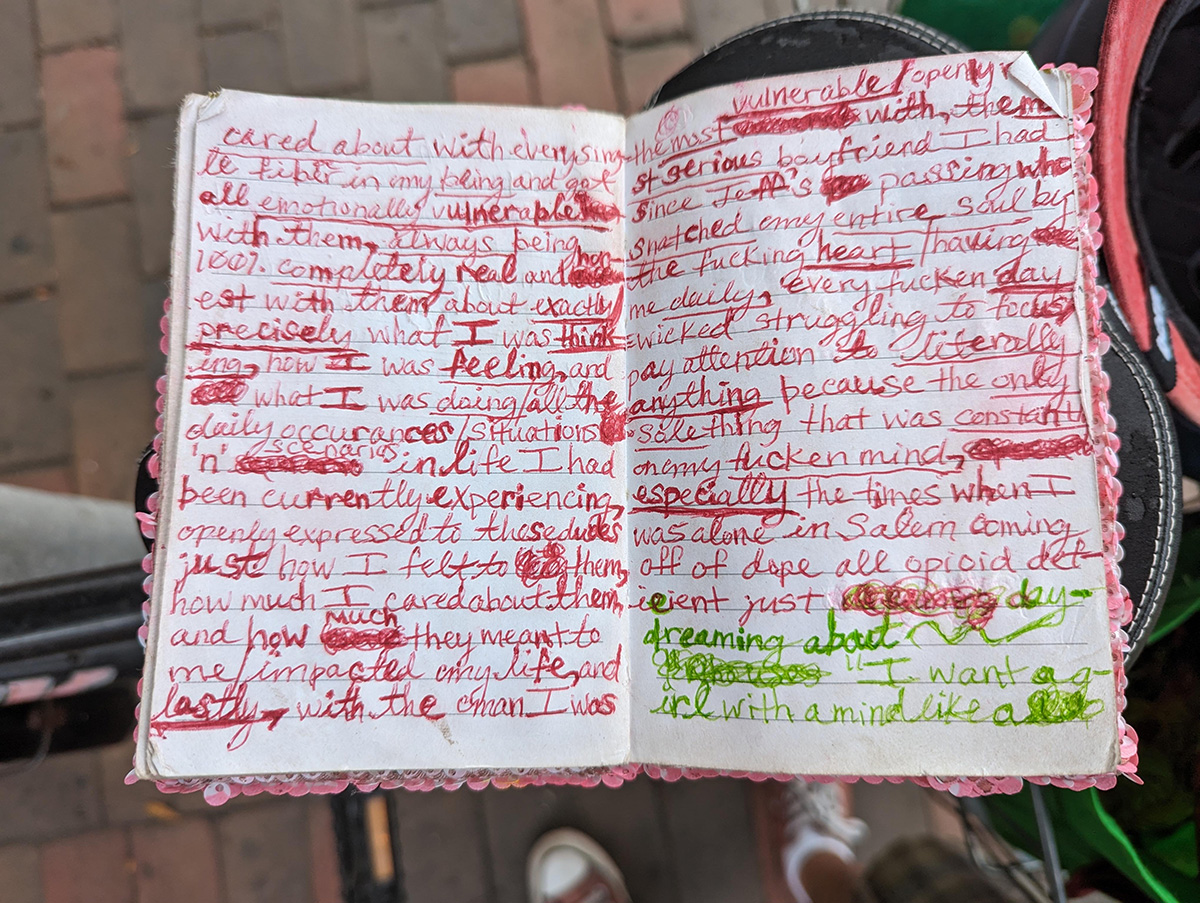 cared about with every sing-
le fibir in my being and got
all emotionally vulnerable
with them, always being
100% completely real and hon
est with them about exactly/
precisely what I was think
ing, how I was feeling, and
what I was doing/all the
daily occurances/situations
'n' scenarios in life I had
been currently experiencing,
openly expressed to these dudes
just how I felt to them,
how much I cared about them,
and how much they meant to
me/impacted my life, and
lastly, with the man I was
vulnerable/openly
the most with, the mo
st serious boyfriend I had
since Jeff's passing who
snatched my entire soul by
the fucking heart/having
me daily, every fucken day
wicked struggling to focus/
pay attention to literally
anything because the only
something that was constantl
on my fucken mind,
especially the times when I
was alone in Salem coming
off of dope all opioid def-
icient just day-
dreaming about
"I want a g-
irl with a mind like a